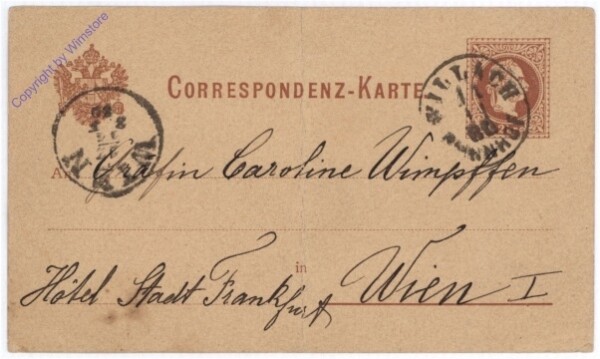 Copyright by Winstore
CORRESPONDENZ-KARTE
VILLACH
80
WIEN
An Gräfin Caroline Wimpffen
in
Hôtel Stadt Frankfurt Wien I